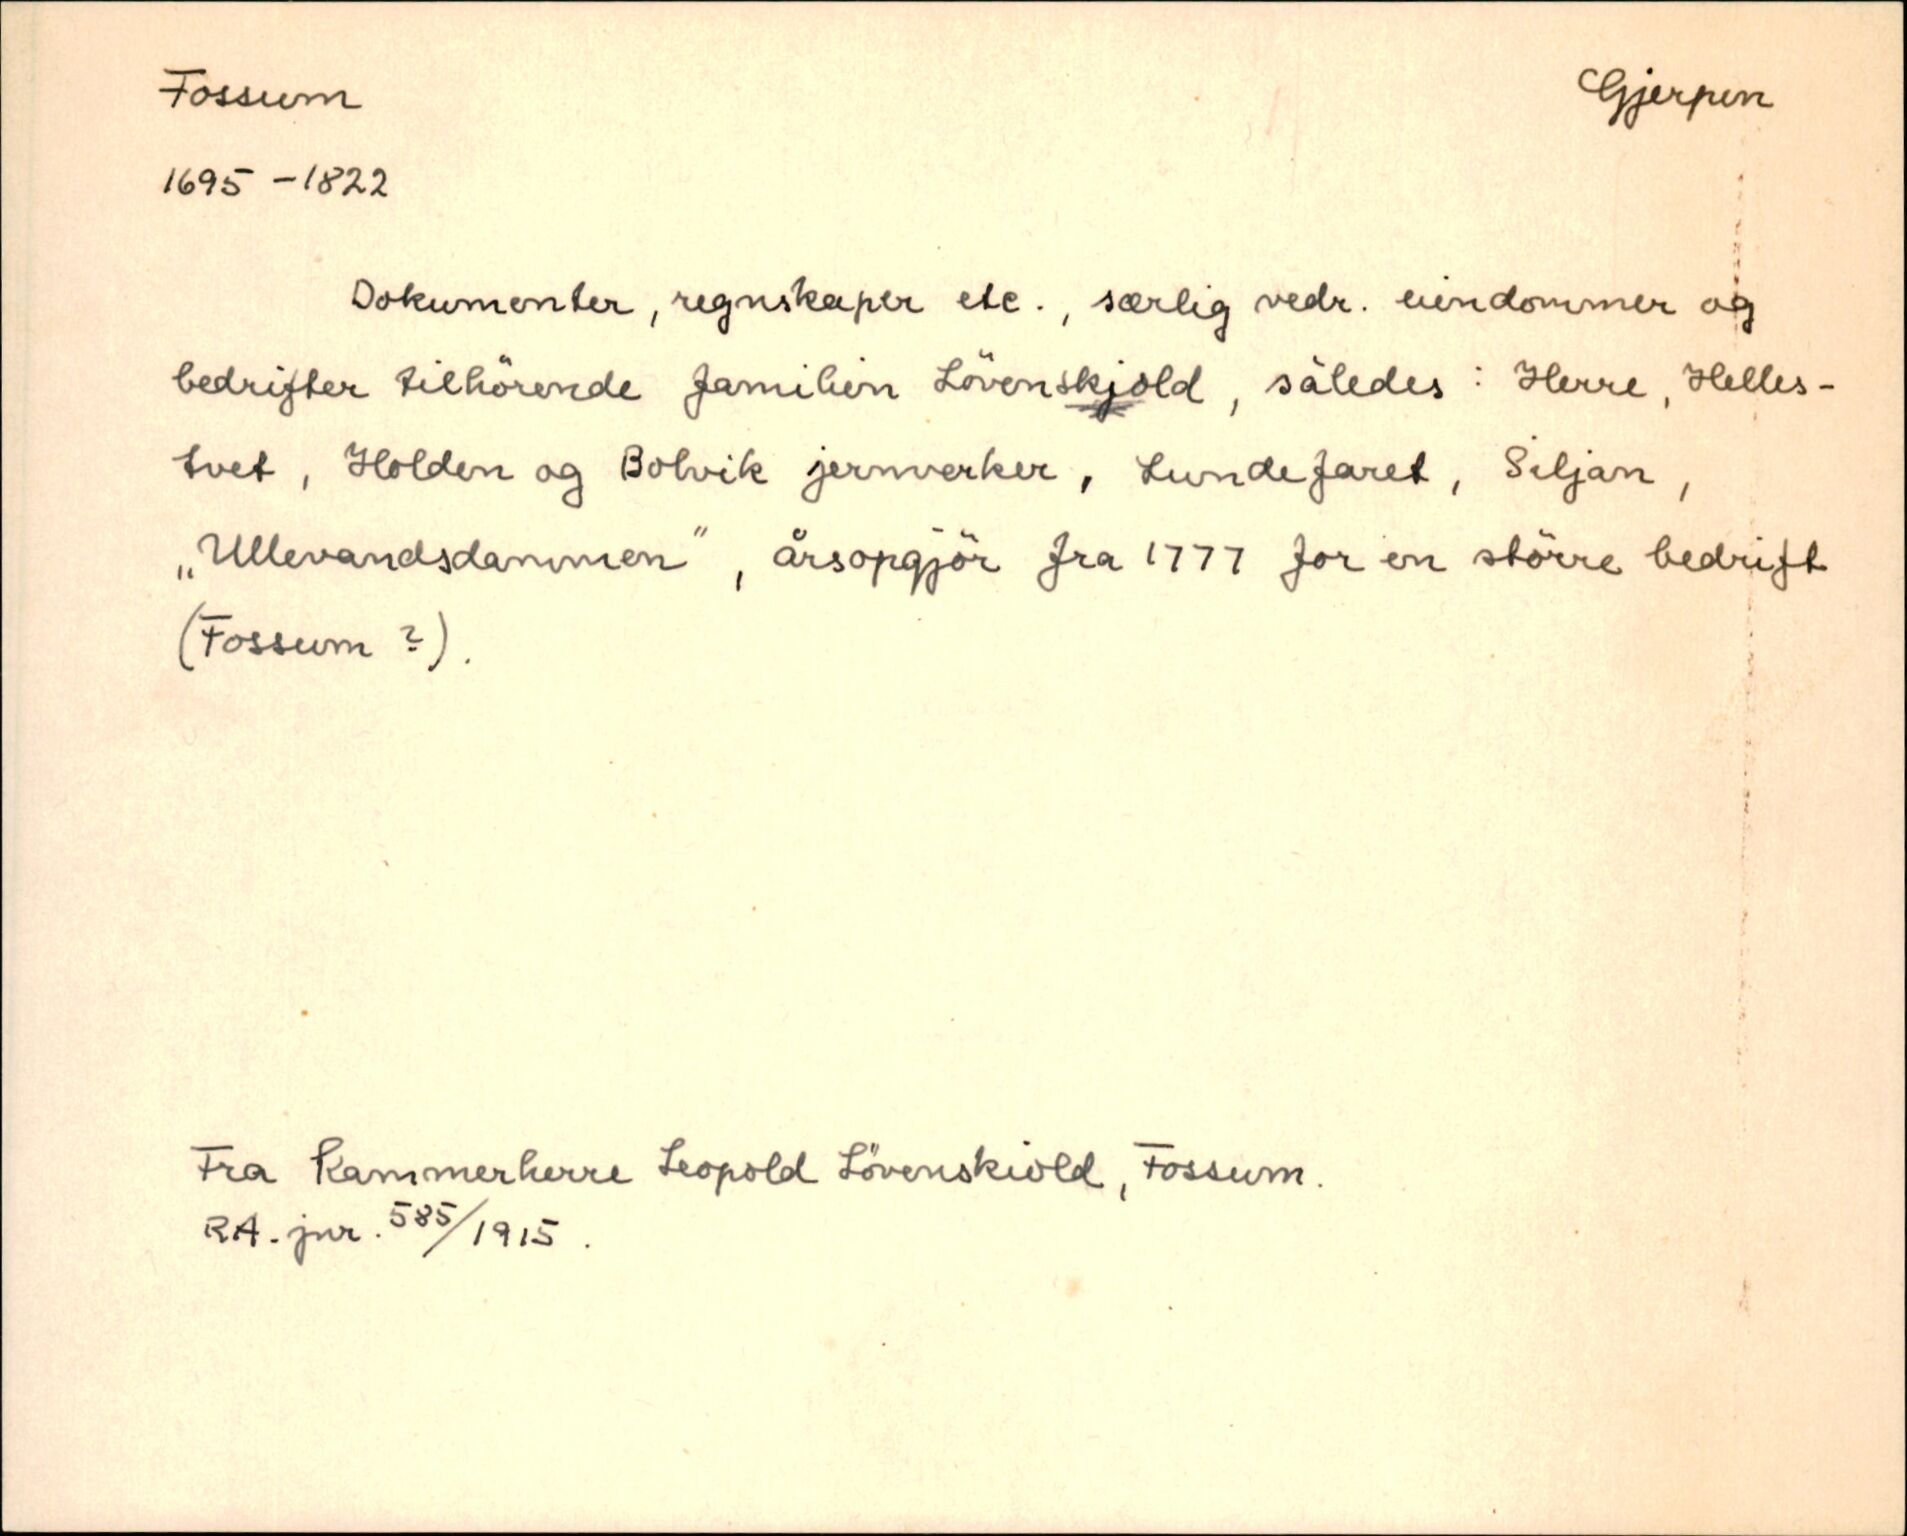 Fossum Gjerpen
1695 - 1822
Dokumenter, regnskaper etc., særlig vedr. eiendommer og
bedrifter tilhörende familien Lövenskjold, således: Herre, Helles-
tvet, Holden og Bolvik jernverker, Lundefaret, Siljan,
„Ullevandsdammen", årsopgjör fra 1777 for en större bedrift
(Fossum ?).
Fra Kammerherre Leopold Lövenskiold, Fossum.
RA. jnr. 585/1915.